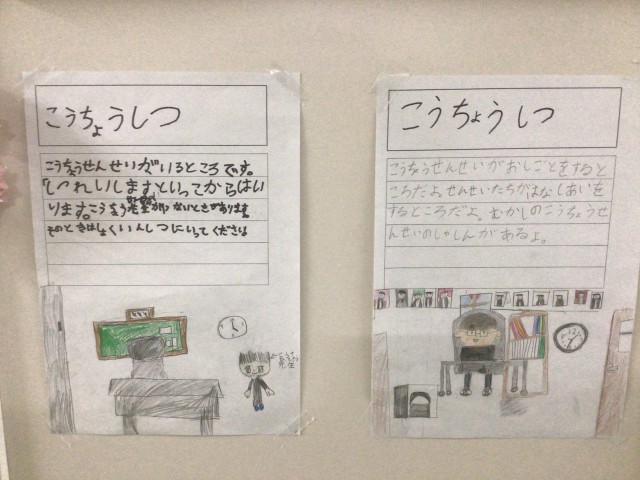 こうちょうしつ
こうちょうせんせいがいるところです。
しつれいしますといってからはい
ります。こうちょう先生がいないときがあります。
そのときはしょくいんしつにいってください
こうちょうしつ
こうちょうせんせいがおしごとをすると
ころだよ。せんせいたちがはなしあいを
するところだよ。むかしのこうちょうせ
んせいのしゃしんがあるよ。